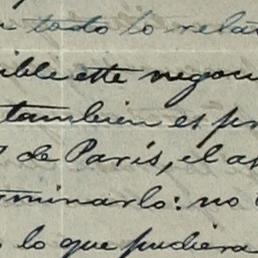 todo lo rela
ible este nego
tambien es pr
de París, el as
minarlo: no
lo que pudiera